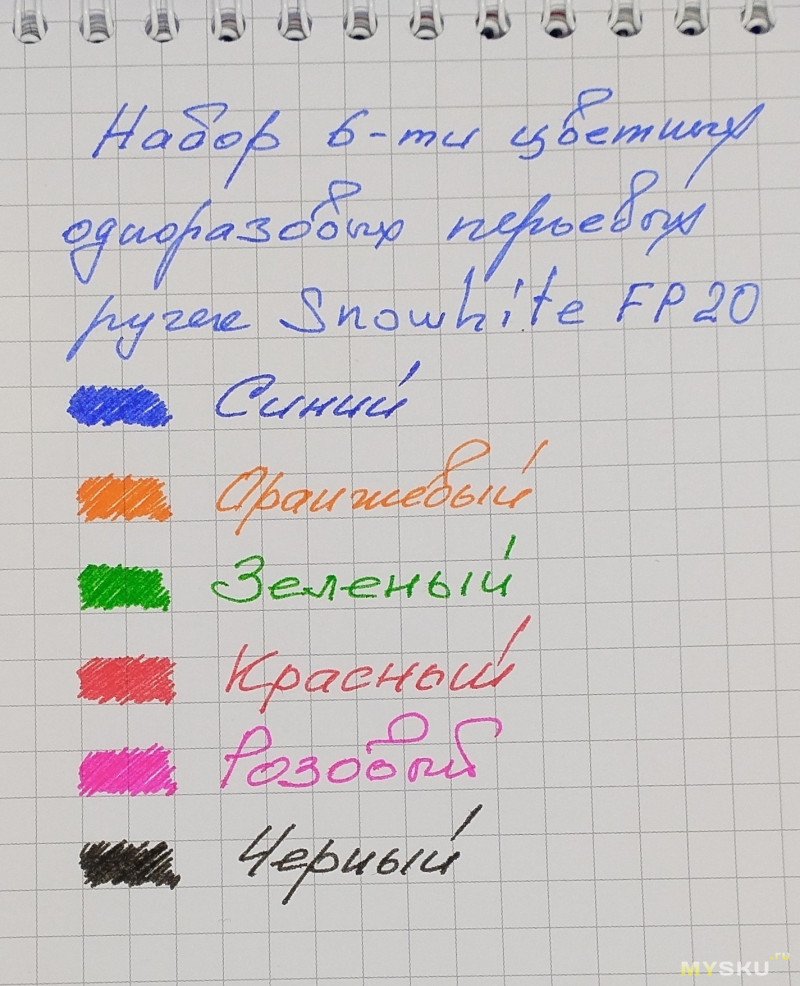 Набор 6-ти цветных
одноразовых перьевых
ручек Snowhite FP20
Синий
Оранжевый
Зеленый
Красный
Розовый
Черный
MYSKU.ru